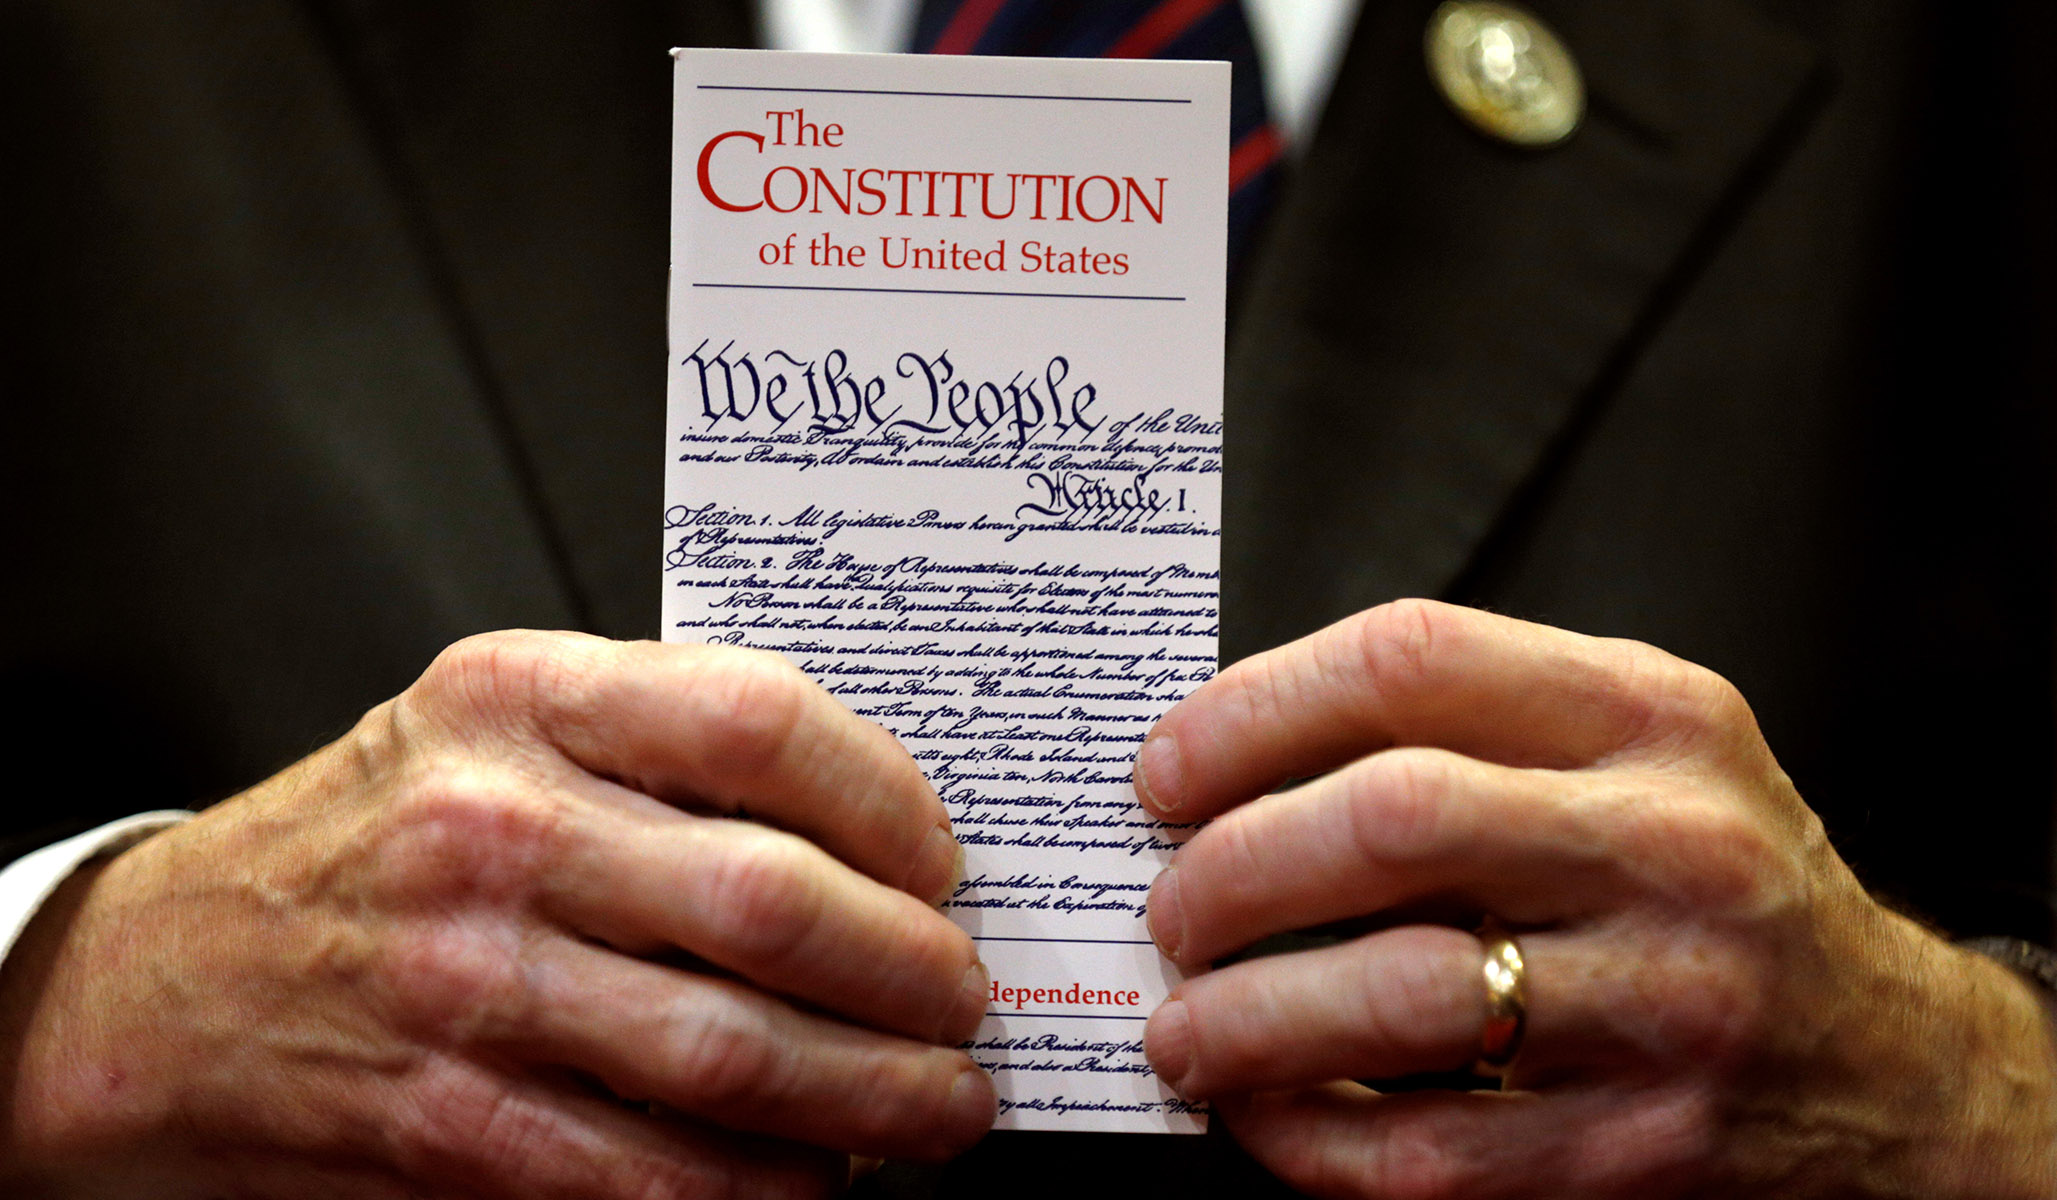 The
CONSTITUTION
of the United States
We the People of the Unit
insure domestic Tranquility, provide for the common defence, promot
and our Posterity, do ordain and establish this Constitution for the Un
Article. I.
Section. 1. All legislative Powers herein granted shall be vested in a
of Representatives.
Section. 2. The House of Representatives shall be composed of Memb
in each State shall have the Qualifications requisite for Electors of the most numero
No Person shall be a Representative who shall not have attained to
and who shall not, when elected, be an Inhabitant of that State in which he sha
Representatives and direct Taxes shall be apportioned among the several
hall be determined by adding to the whole Number of free Pe
of all other Persons. The actual Enumeration sha
ent Term of ten Years, in such Manner as
shall have at Least one Representa
etts eight, Rhode Island and
Virginia ten, North Caroli
Representation from any
hall chuse their Speaker and
States shall be composed of two
assembled in Consequence
vacated at the Expiration of
dependence
shall be President of the
and also a President
try all Impeachments. When